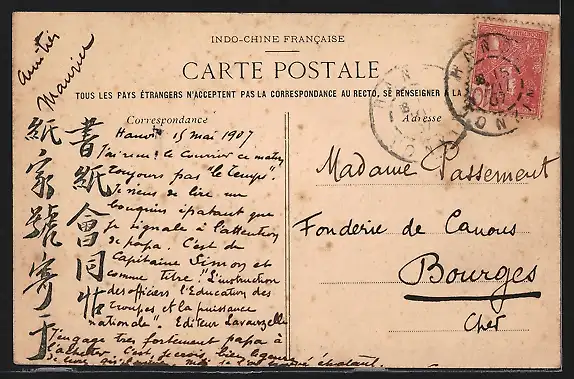 INDO-CHINE FRANÇAISE
CARTE POSTALE
TOUS LES PAYS ÉTRANGERS N'ACCEPTENT PAS LA CORRESPONDANCE AU RECTO, SE RENSEIGNER A LA
Correspondance
Adresse
amitiés
Maurice
Hanoi 15 mai 1907
J'ai reçu le courrier ce matin
toujours pas "le temps".
Je viens de lire un
bouquin épatant que
je signale à l'attention
de papa. C'est de
Capitaine Simon et
comme titre: "L'instruction
des officiers l'Education des
troupes et la puissance
nationale". Editeur Lavauzelle
J'engage très fortement papa à
l'acheter C'est je crois bien le genre
書紙會同帖
紙家號寄于
Madame Passement
Fonderie de Canons
Bourges
Cher
HANOI
TONKIN